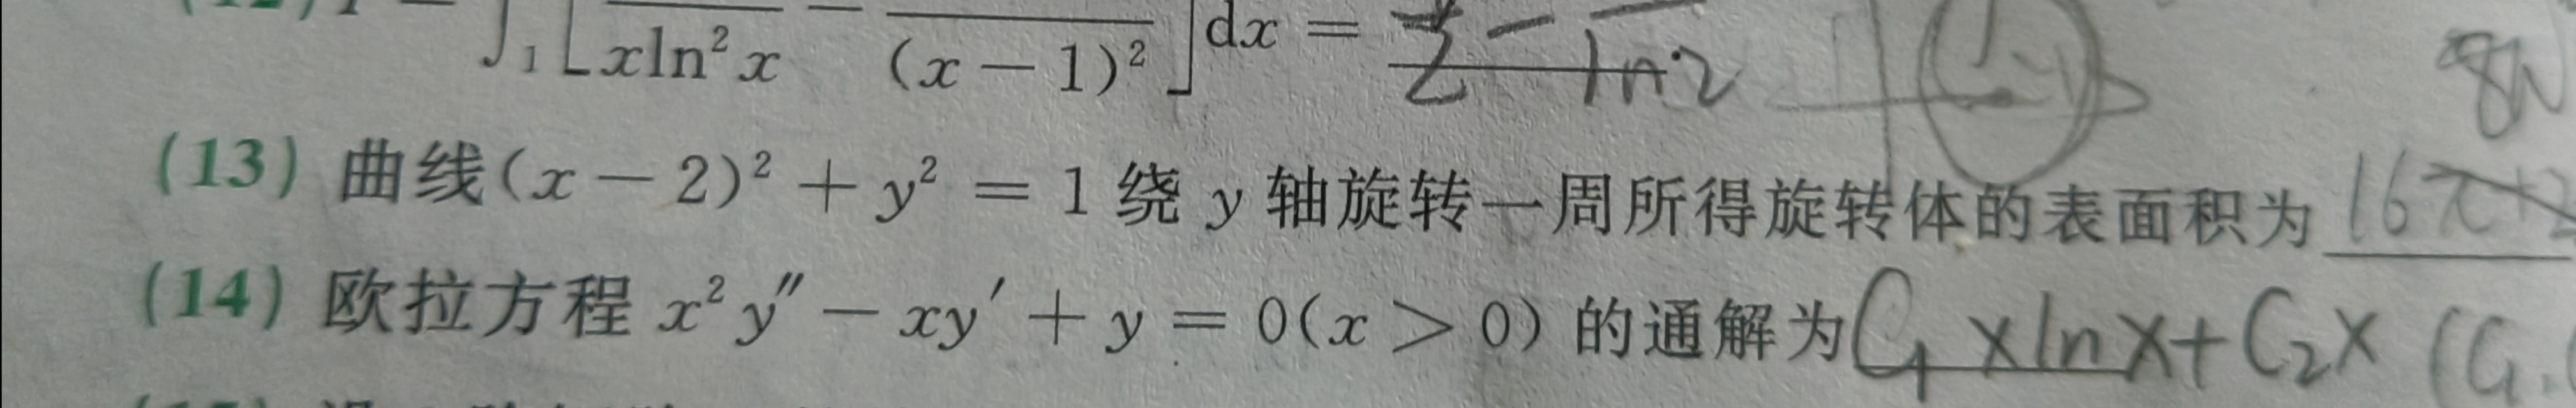 ∫₁ [ xln²x − (x − 1)² ] dx = 1/2 − ln2
8
(13) 曲线(x − 2)² + y² = 1 绕 y 轴旋转一周所得旋转体的表面积为 16π
(14) 欧拉方程 x²y″ − xy′ + y = 0(x > 0) 的通解为 C₁xlnx+C₂x (C₁.